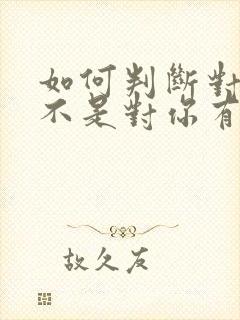 如何判斷對
不是對你有
故久友